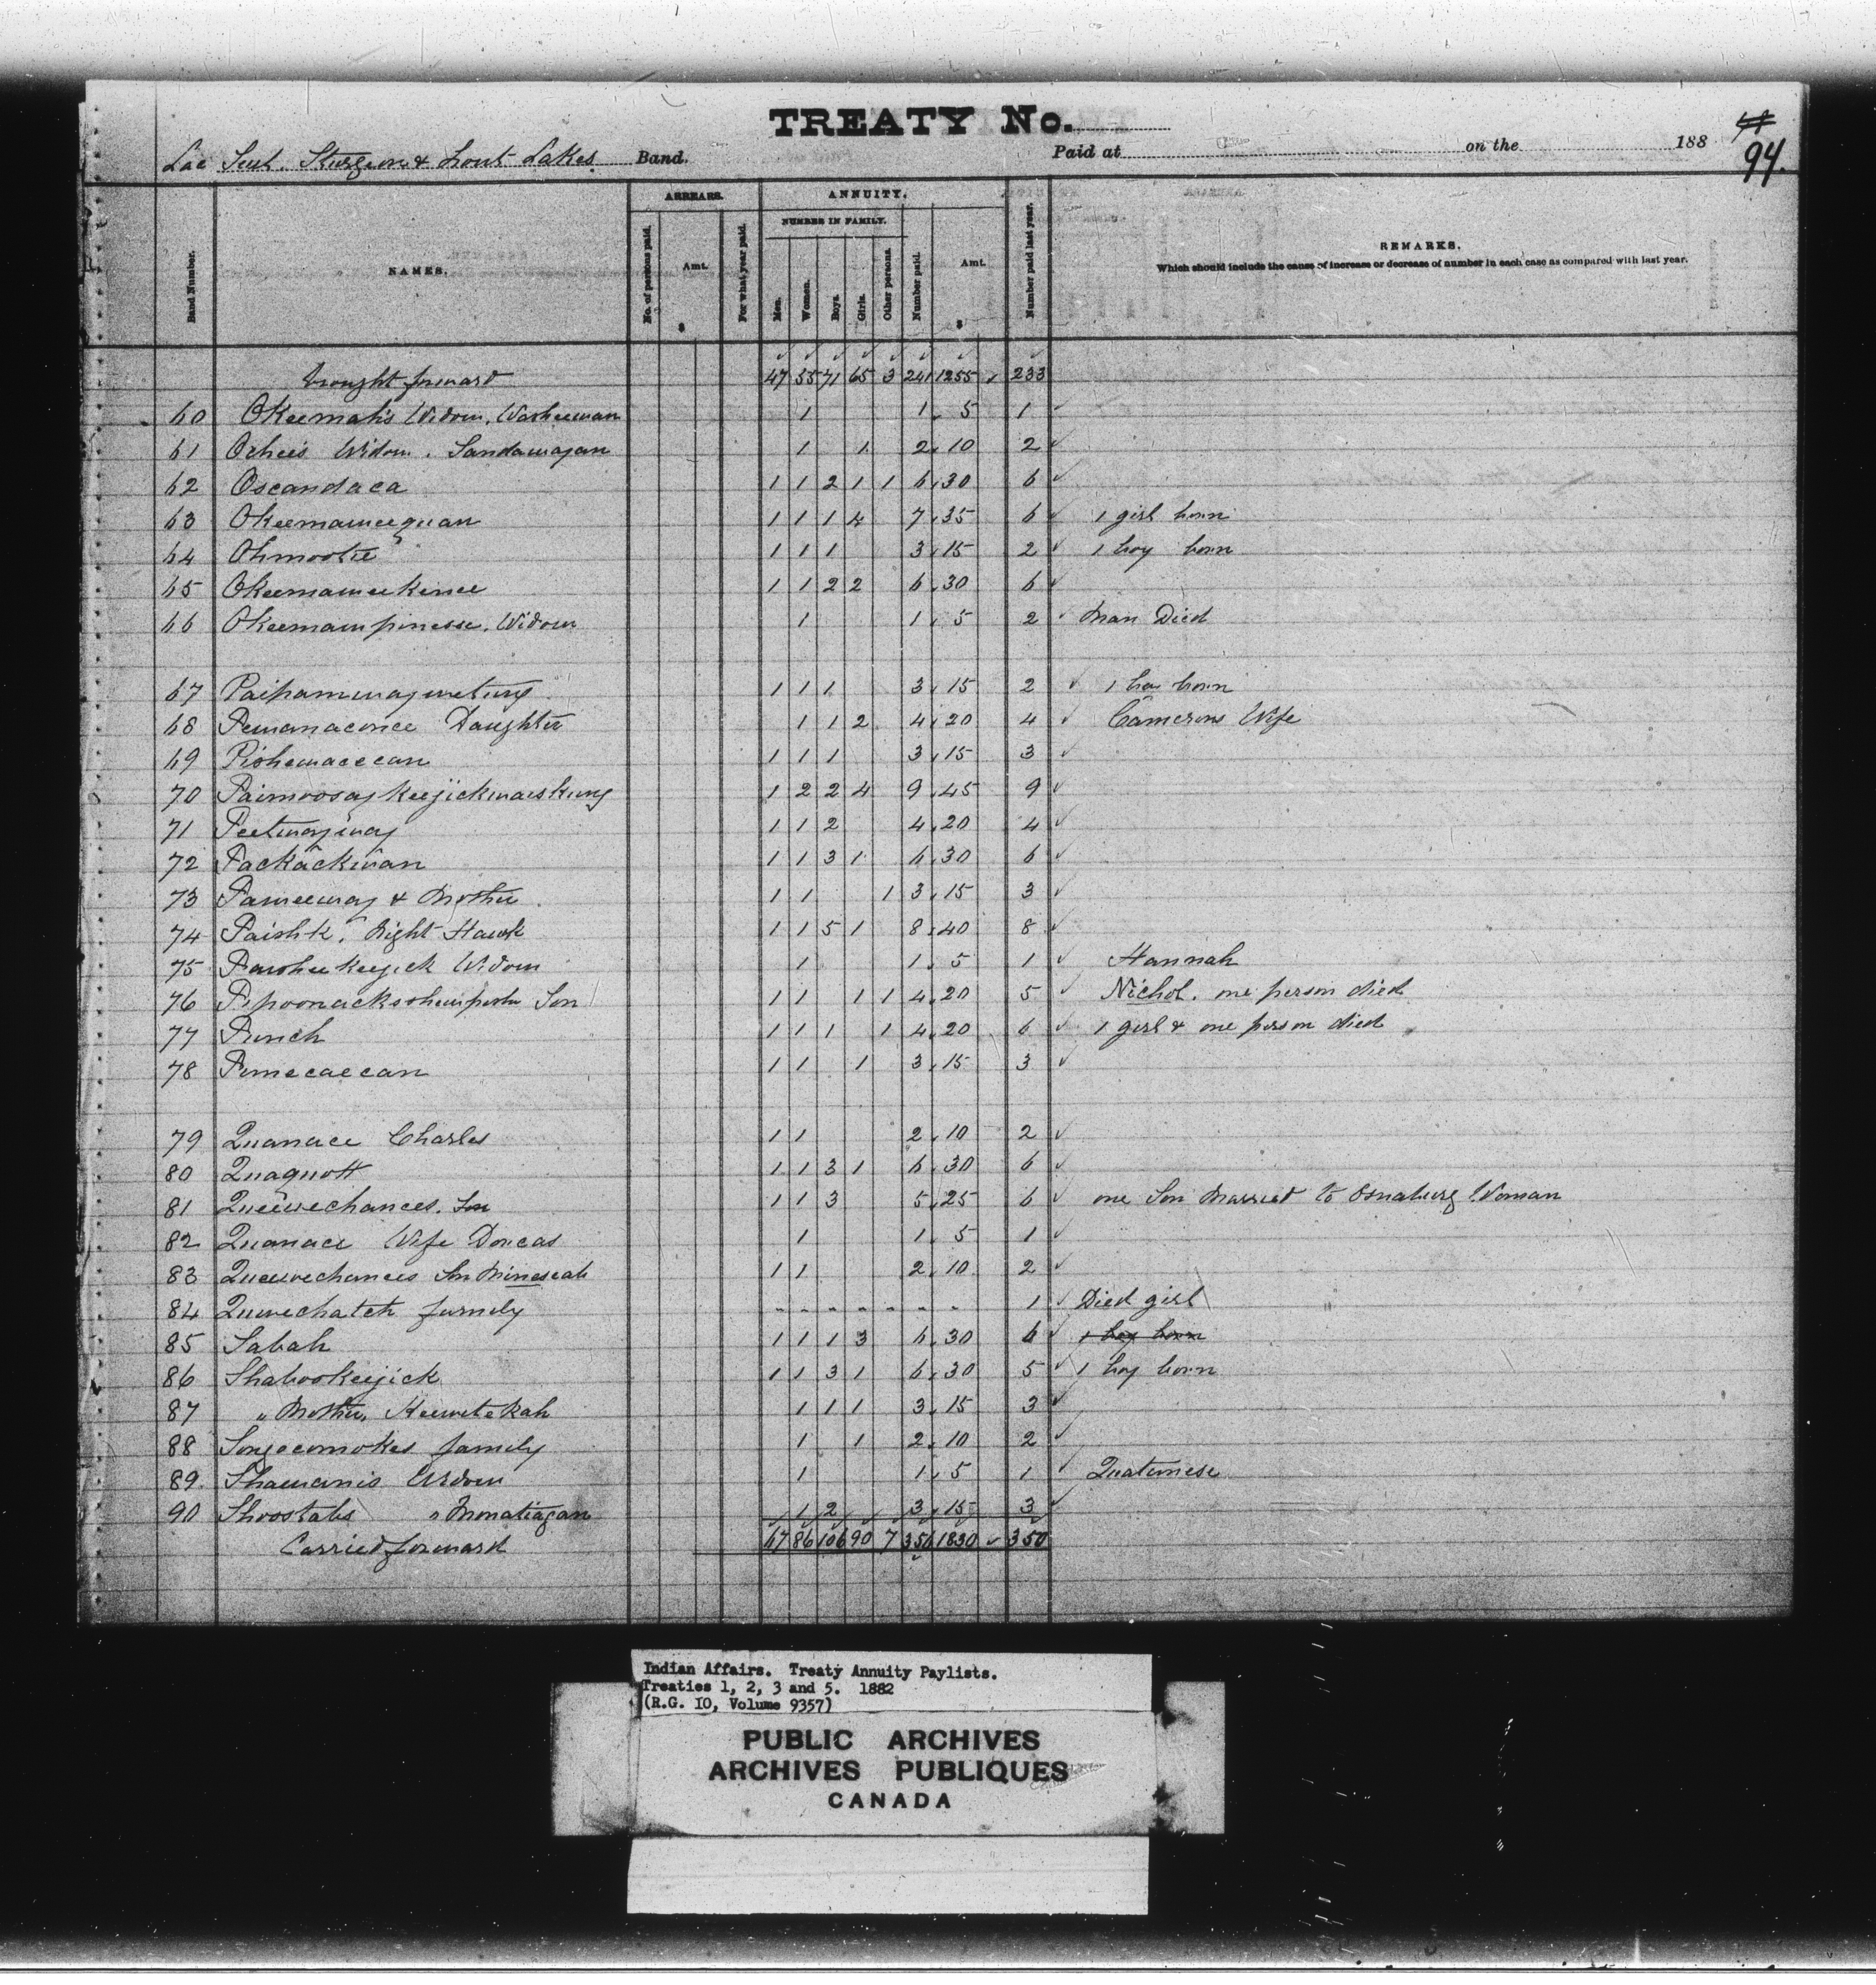 TREATY No.
94.
Lac Seul. Sturgeon & Trout Lakes. Band. Paid at on the 188
ARREARS. ANNUITY.
NUMBER IN FAMILY.
Band Number. NAMES. No. of persons paid. Amt. $ For what year paid. Men. Women. Boys. Girls. Other persons. Number paid. Amt. $ Number paid last year. REMARKS.
Which should include the cause of increase or decrease of number in each case as compared with last year.
brought forward 47 55 71 65 3 241 1255 233
60 Okeemah's Widow, Washeewan 1 1 5 1
61 Ochee's Widow. Sandawagan 1 1 2 10 2
62 Oscandaca 1 1 2 1 1 6 30 6
63 Okeemaweequan 1 1 1 4 7 35 6 1 girl born
64 Ohmootie 1 1 1 3 15 2 1 boy born
65 Okeemaweekinee 1 1 2 2 6 30 6
66 Okeemawpinesse. Widow 1 1 5 2 Man Died
67 Paipamwaywetung 1 1 1 3 15 2 1 boy born
68 Pemanaconce Daughter 1 1 2 4 20 4 Camerons Wife
69 Pishewacecan 1 1 1 3 15 3
70 Paimoosay Keejickwaiskung 1 2 2 4 9 45 9
71 Peetwayway 1 1 2 4 20 4
72 Packackwan 1 1 3 1 6 30 6
73 Pameeway & Mother 1 1 1 3 15 3
74 Paishk. Night Hawk 1 1 5 1 8 40 8
75 Pawsheekeejick Widow 1 1 5 1 Hannah
76 Son 1 1 1 1 4 20 5 Nichol. one person died
77 Punch 1 1 1 1 4 20 6 1 girl & one person died
78 Pimecaecan 1 1 1 3 15 3
79 Quanace Charles 1 1 2 10 2
80 Quaquott 1 1 3 1 6 30 6
81 Queewechances. Son 1 1 3 5 25 6 one Son Married to Osnaburg Woman
82 Quanace Wife Dorcas 1 1 5 1
83 Queewechances Son Mineseah 1 1 2 10 2
84 Quewechatch family - - - - - - - 1 Died girl
85 Sabah 1 1 1 3 6 30 6 1 boy born
86 Shabookeejick 1 1 3 1 6 30 5 1 boy born
87 " Mother, Keewetekah 1 1 1 3 15 3
88 Songecomokes family 1 1 2 10 2
89 Shawanis Widow 1 1 5 1 Quatemese
90 Shoostahs " Monatiagan 1 2 3 15 3
Carried forward 67 86 106 90 7 356 1830 350
Indian Affairs. Treaty Annuity Paylists.
Treaties 1, 2, 3 and 5. 1882
(R.G. 10, Volume 9357)
PUBLIC ARCHIVES
ARCHIVES PUBLIQUES
CANADA